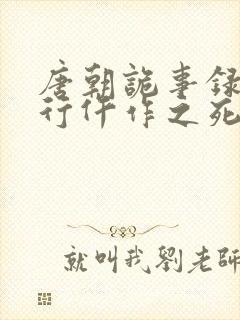 唐朝詭事录
行仵作之死
就叫我劉老師